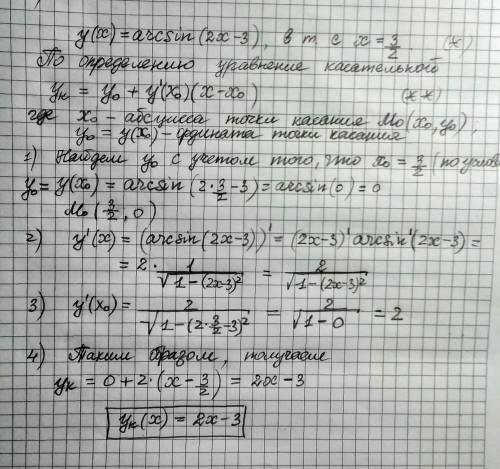 y(x) = arcsin(2x-3), в т. с x = 3/2 (*)
По определению уравнение касательной
yк = y₀ + y'(x₀)(x-x₀) (**)
где x₀ - абсцисса точки касания M₀(x₀, y₀),
y₀ = y(x₀) - ордината точки касания
1) Найдем y₀ с учетом того, что x₀ = 3/2 (по услов
y₀ = y(x₀) = arcsin(2·3/2-3) = arcsin(0) = 0
M₀(3/2, 0)
2) y'(x) = (arcsin(2x-3))' = (2x-3)' arcsin'(2x-3) =
= 2 · 1/√(1-(2x-3)²) = 2/√(1-(2x-3)²)
3) y'(x₀) = 2/√(1-(2·3/2-3)²) = 2/√(1-0) = 2
4) Таким образом, получаем
yк = 0 + 2·(x - 3/2) = 2x - 3
yк(x) = 2x-3